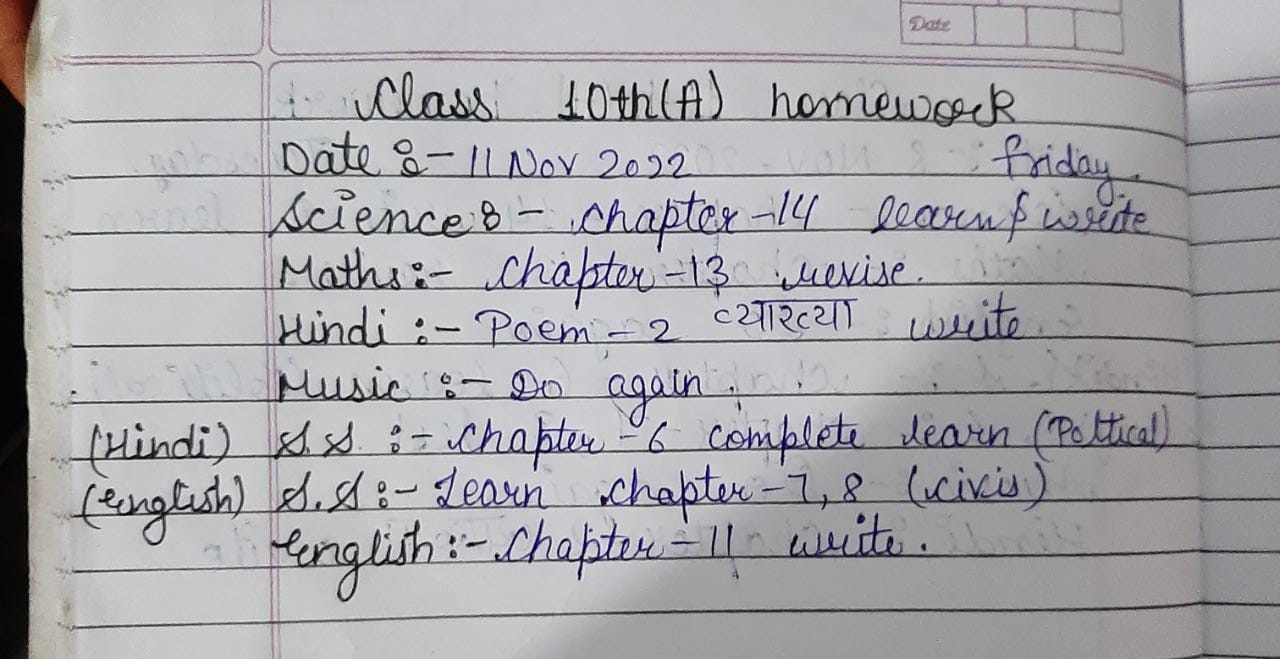 Date
Class 10th(A) homework
Date :- 11 Nov 2022 friday.
Science :- chapter -14 learn & write
Maths :- chapter -13 revise.
Hindi :- Poem - 2 व्याख्या write.
Music :- Do again.
(Hindi) S.S :- chapter - 6 complete learn (Poltical)
(english) S.S :- Learn chapter - 7, 8 (civis)
english :- chapter - 11 write.